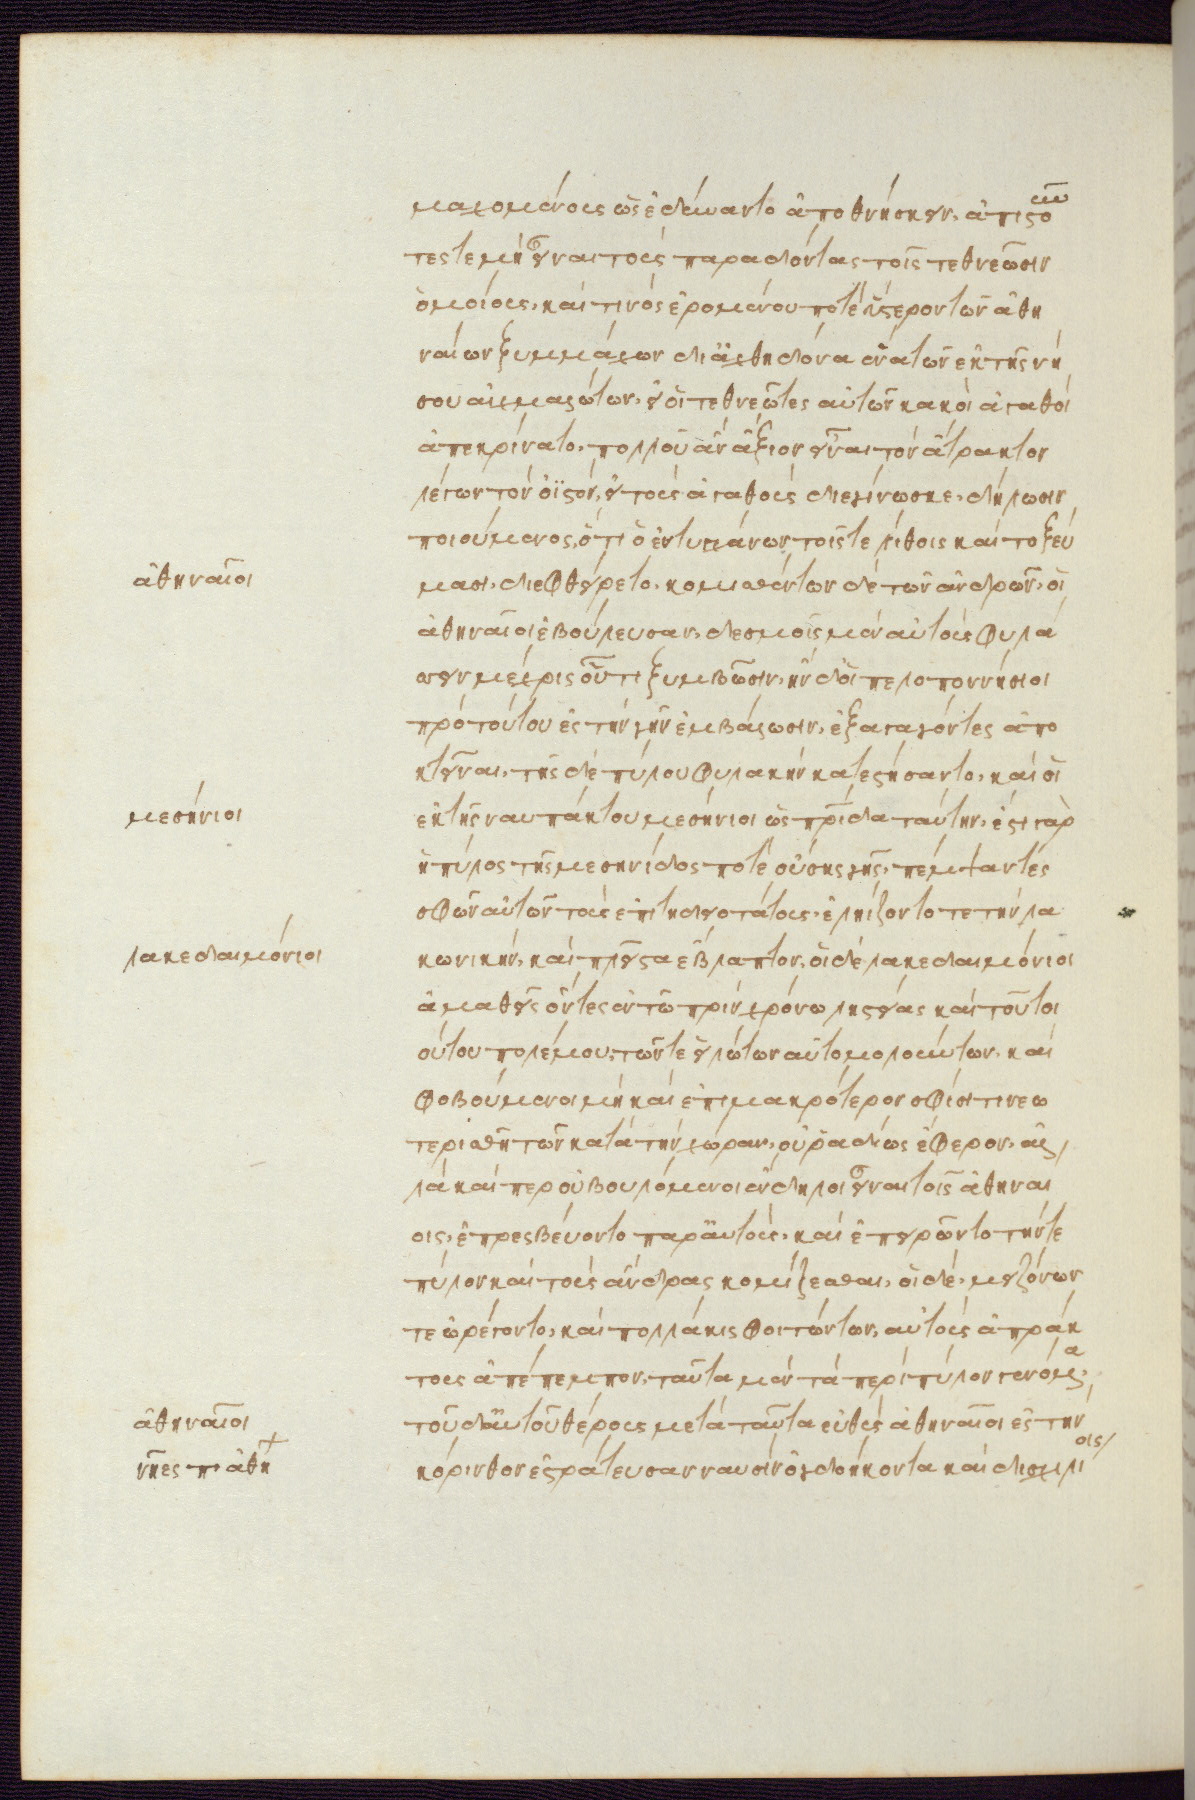 μαχομένους ὡς ἐδύναντο ἀποθνήσκειν. ἀπιστοῦν
τές τε μὴ εἶναι τοὺς παραδόντας τοῖς τεθνεῶσιν
ὁμοίους. καί τινος ἐρομένου ποτὲ ὕστερον τῶν ἀθη
ναίων ξυμμάχων δι᾽ ἀχθηδόνα ἕνα τῶν ἐκ τῆς νή
σου αἰχμαλώτων. εἰ οἱ τεθνεῶτες αὐτῶν καλοὶ ἀγαθοί
ἀπεκρίνατο. πολλοῦ ἂν ἄξιον εἶναι τὸν ἄτρακτον
λέγων τὸν ὀϊστόν. εἰ τοὺς ἀγαθοὺς διεγίνωσκε. δήλωσιν
ποιούμενος, ὅτι ὁ ἐντυγχάνων τοῖς τε λίθοις καὶ τοξεύ
ἀθηναῖοι
μασι. διεφθείρετο. κομισθέντων δὲ τῶν ἀνδρῶν. οἱ
ἀθηναῖοι ἐβούλευσαν. δεσμοῖς μὲν αὐτοὺς φυλά
σσειν μέχρις οὗ τι ξυμβῶσιν. ἢν δ᾽ οἱ πελοποννήσιοι
πρὸ τούτου ἐς τὴν γῆν ἐμβάλωσιν. ἐξαγαγόντες ἀπο
κτεῖναι. τῆς δὲ πύλου φυλακὴν κατεστήσαντο. καὶ οἱ
μεσήνιοι
ἐκ τῆς ναυπάκτου μεσήνιοι ὡς πατρίδα ταύτην. ἔστι γὰρ
ἡ πύλος τῆς μεσηνίδος ποτὲ οὔσης γῆς. πέμψαντες
σφῶν αὐτῶν τοὺς ἐπιτηδειοτάτους. ἐλήϊζοντό τε τὴν λα
λακεδαιμόνιοι
κωνικὴν. καὶ πλεῖστα ἔβλαπτον. οἱ δὲ λακεδαιμόνιοι
ἀμαθεῖς ὄντες ἐν τῶ πρὶν χρόνω ληστείας καὶ τοῦ τοι
ούτου πολέμου. τῶν τε εἱλώτων αὐτομολούντων. καὶ
φοβούμενοι μὴ καὶ ἐπιμακρότερον σφίσι τι νεω
τερισθῆ τῶν κατὰ τὴν χώραν. οὐ ῥαδίως ἔφερον. ἀλ
λὰ καίπερ οὐ βουλόμενοι ἔνδηλοι εἶναι τοῖς ἀθηναί
οις. ἐπρεσβεύοντο παρ᾽ αὐτοὺς. καὶ ἐπειρῶντο τήν τε
πύλον καὶ τοὺς ἄνδρας κομίζεσθαι. οἱ δὲ. μειζόνων
τε ὠρέγοντο. καὶ πολλάκις φοιτώντων. αὐτοὺς ἀπράκ
τους ἀπέπεμπον. ταῦτα μὲν τὰ περὶ πύλον γενόμενα.
ἀθηναῖοι
τοῦ δ᾽ αὐτοῦ θέρους μετὰ ταῦτα εὐθὺς ἀθηναῖοι ἐς τὴν
νῆες π ἀθη
κόρινθον ἐστράτευσαν ναυσὶν ὀγδοήκοντα καὶ δισχιλίοις